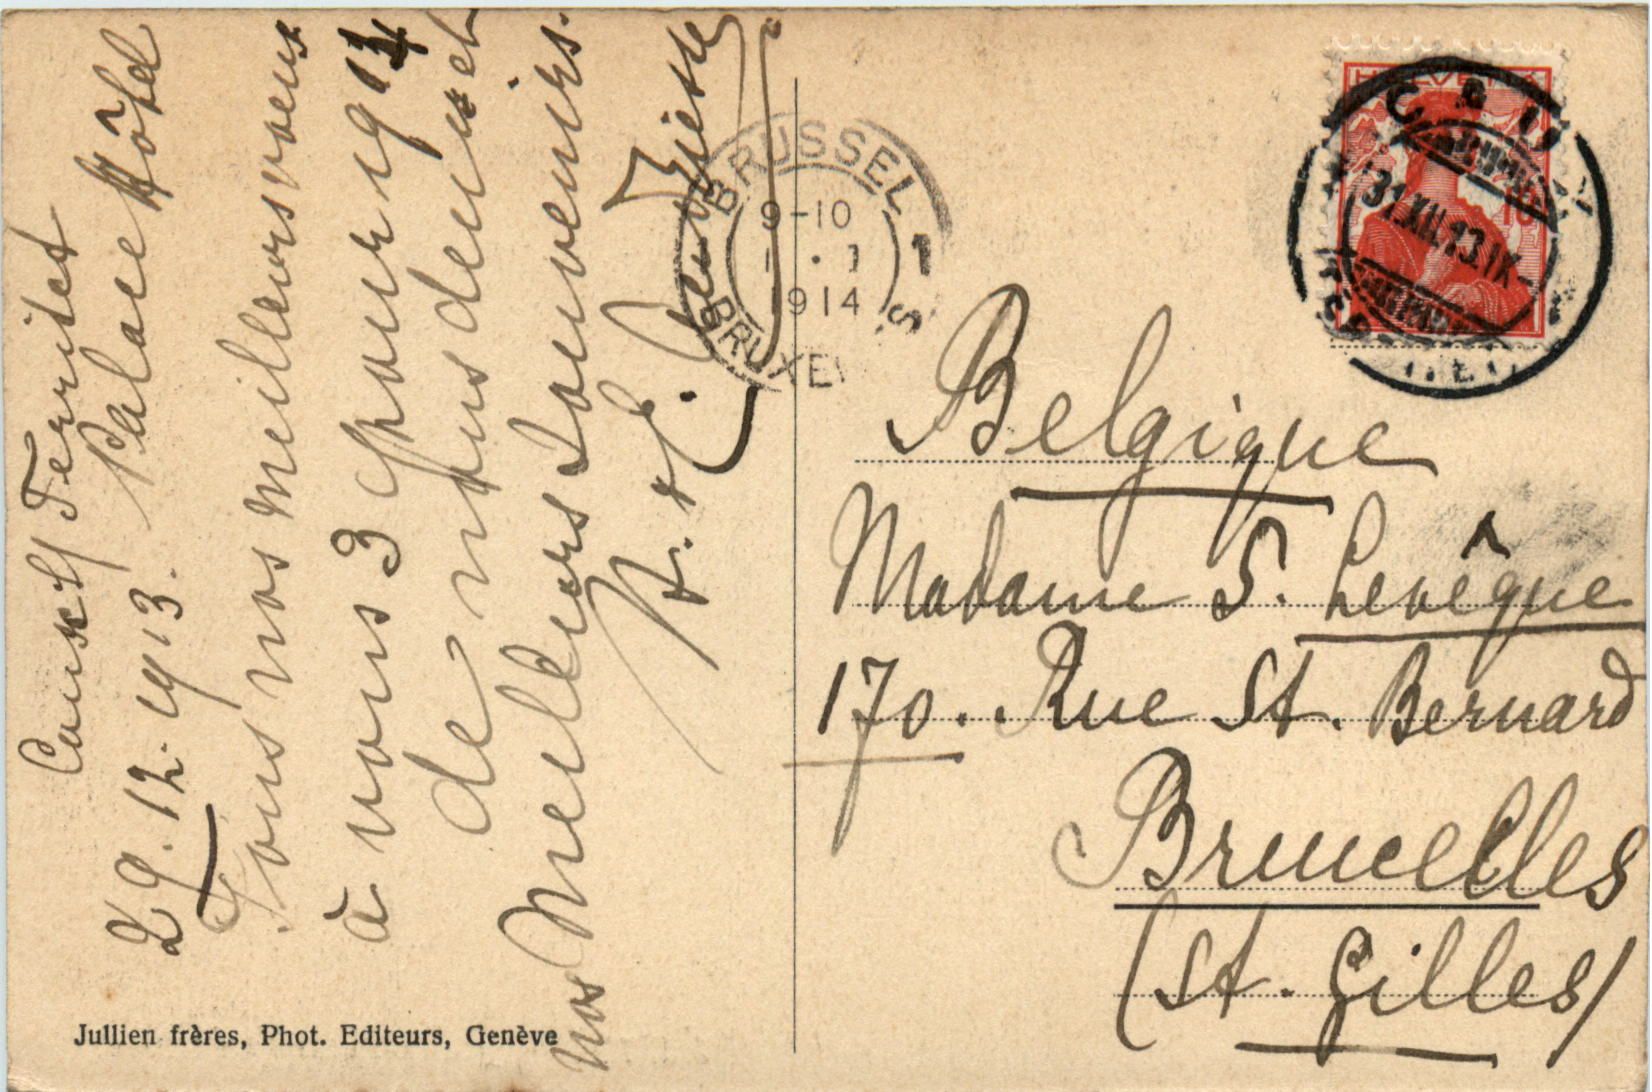 Caux s/ Territet
29.12.1913. Palace Hôtel
Tous nos meilleurs voeux
à vous 3 pour 1914
de nous deux et
nos meilleurs souvenirs.
H. &
HELVETIA
10
31.XII.13.IX
BRUSSEL
9-10
1914
1
BRUXEL S
Belgique
Madame S. Levêque
170. Rue St. Bernard
Bruxelles
(St. Gilles)
Jullien frères, Phot. Editeurs, Genève